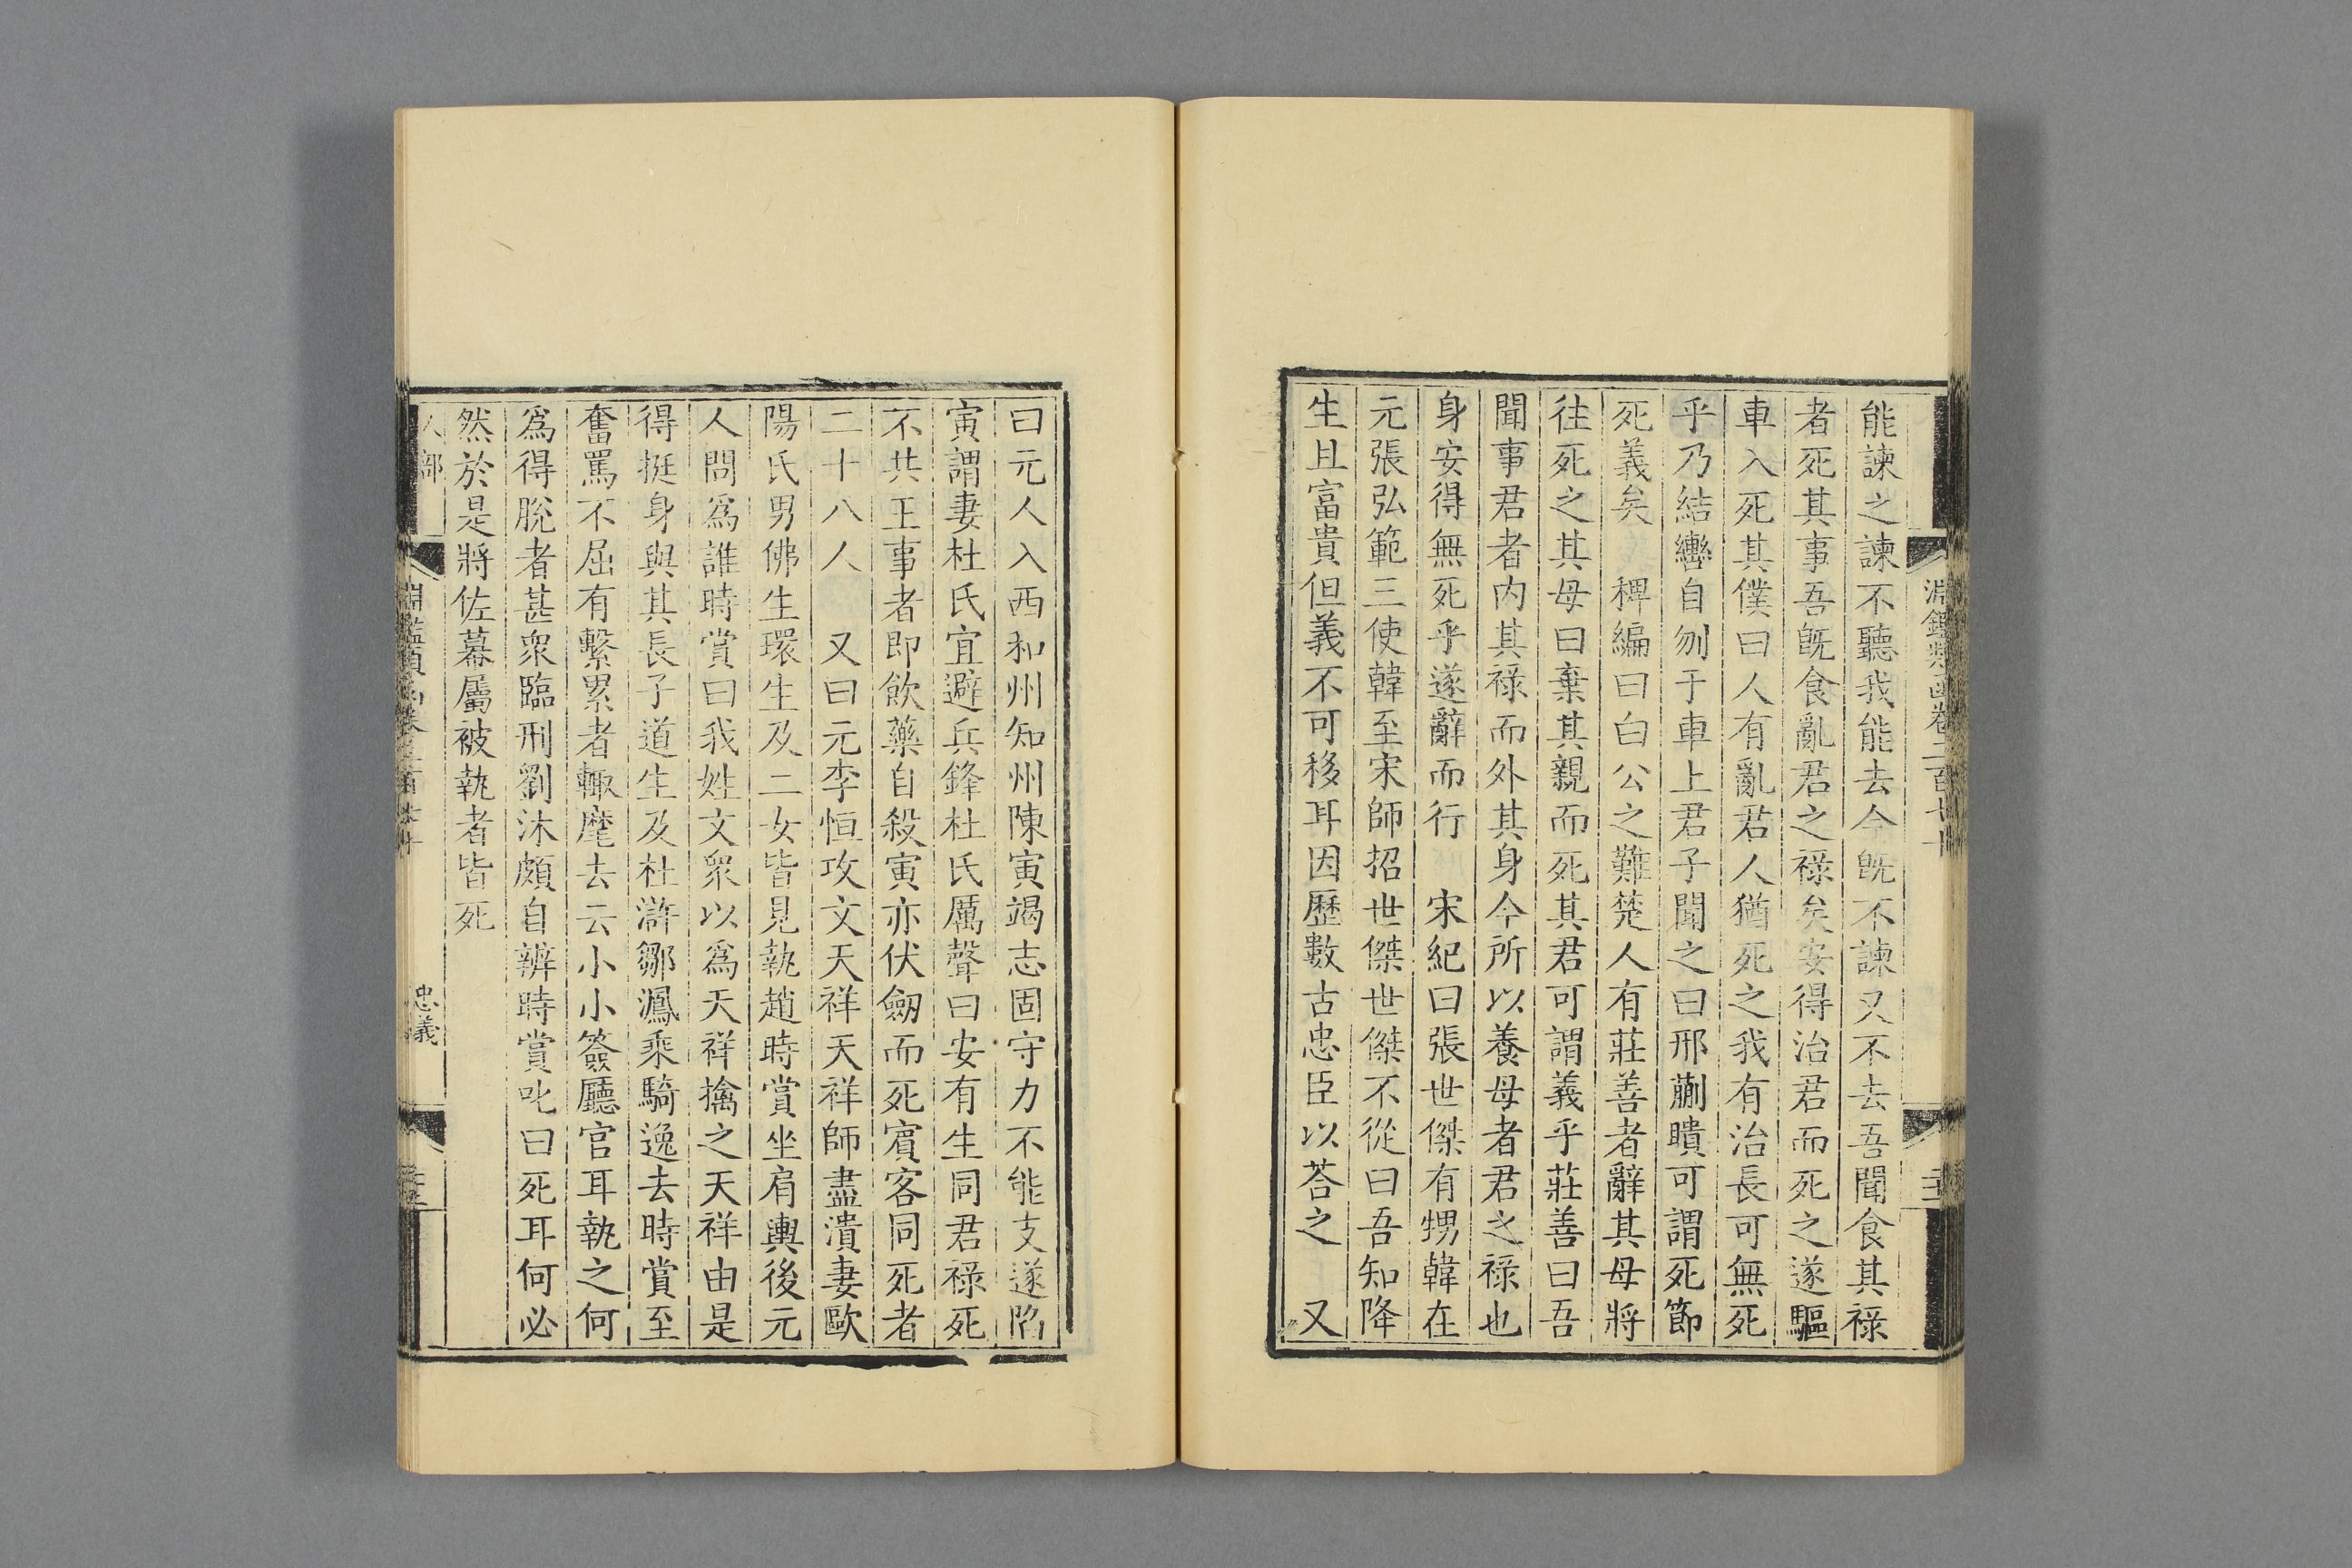 淵鑑類函卷二百七十
能諫之諫不聽我能去今既不諫又不去吾聞食其祿
者死其事吾既食亂君之祿矣安得治君而死之遂驅
車入死其僕曰人有亂君人猶死之我有治長可無死
乎乃結轡自刎于車上君子聞之曰邢蒯聵可謂死節
死義矣　稗編曰白公之難楚人有莊善者辭其母將
往死之其母曰棄其親而死其君可謂義乎莊善曰吾
聞事君者内其祿而外其身今所以養母者君之祿也
身安得無死乎遂辭而行　宋紀曰張世傑有甥韓在
元張弘範三使韓至宋師招世傑世傑不從曰吾知降
生且富貴但義不可移耳因歷數古忠臣以荅之　又
曰元人入西和州知州陳寅竭志固守力不能支遂陷
寅謂妻杜氏宜避兵鋒杜氏厲聲曰安有生同君祿死
不共王事者即飲藥自殺寅亦伏劒而死賓客同死者
二十八人　又曰元李恒攻文天祥天祥師盡潰妻歐
陽氏男佛生環生及二女皆見執趙時賞坐肩輿後元
人問爲誰時賞曰我姓文衆以爲天祥擒之天祥由是
得挺身與其長子道生及杜滸鄒㵯乘騎逸去時賞至
奮罵不屈有繫累者輙麾去云小小簽廳官耳執之何
爲得脫者甚衆臨刑劉沐頗自辨時賞叱曰死耳何必
然於是將佐幕屬被執者皆死
人部
忠義